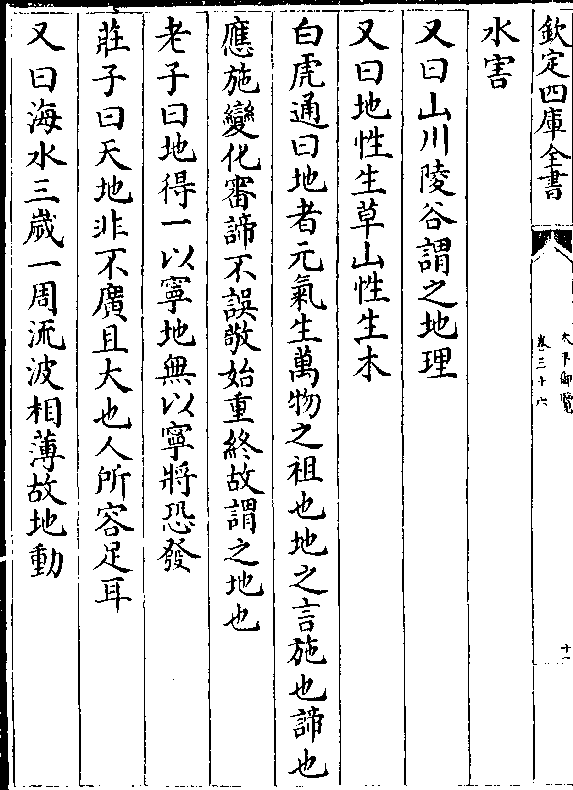 欽定四庫全書
太平御覽
卷三十六
水害
又曰山川陵谷謂之地理
又曰地性生草山性生木
白虎通曰地者元氣生萬物之祖也地之言施也諦也
應施變化審諦不誤敬始重終故謂之地也
老子曰地得一以寧地無以寧將恐發
莊子曰天地非不廣且大也人所容足耳
又曰海水三歲一周流波相薄故地動